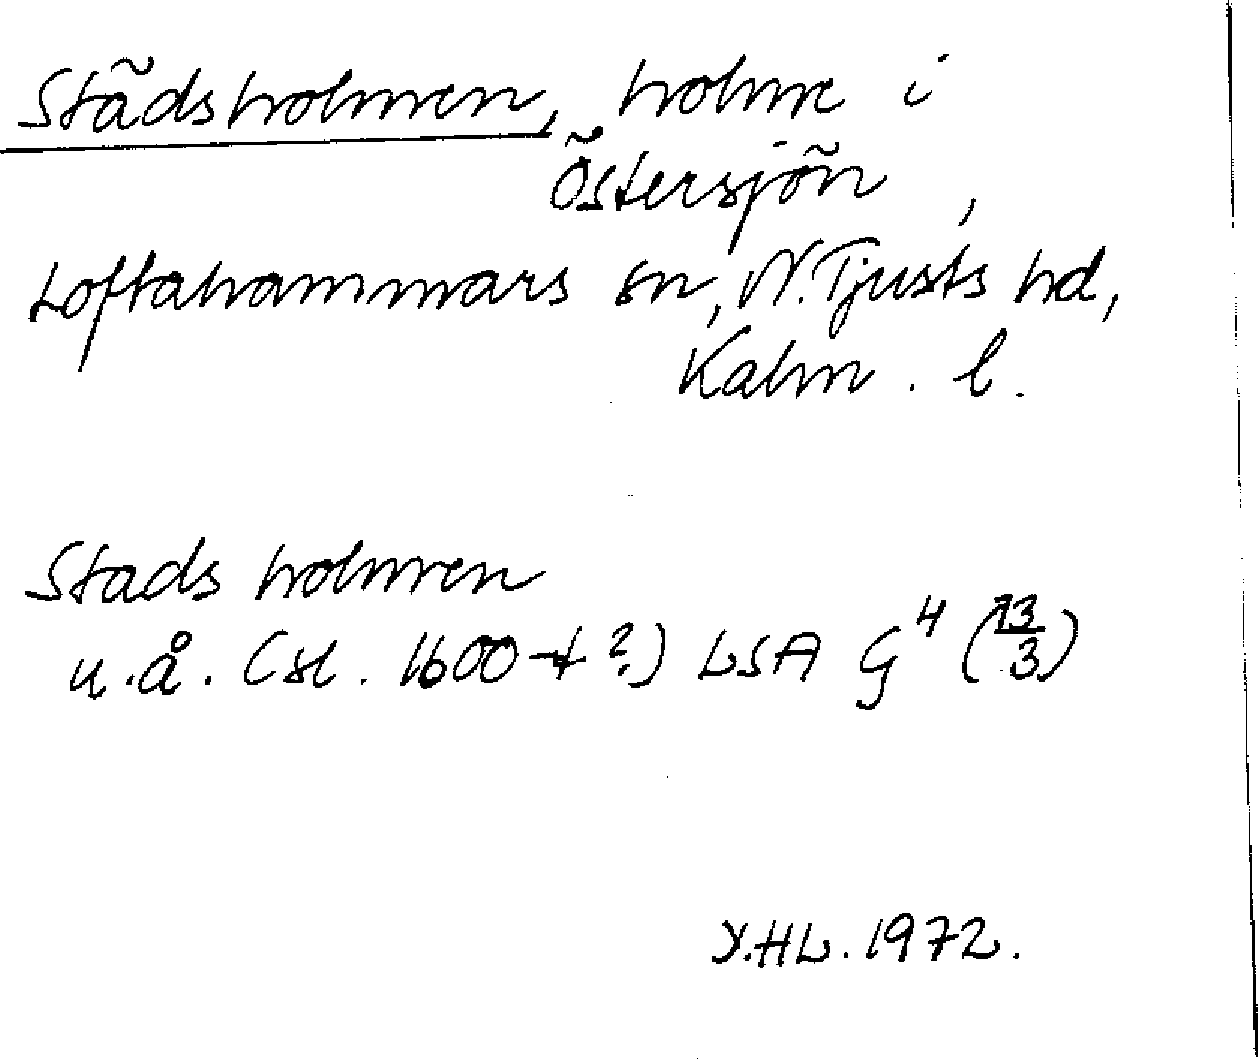 Städsholmen, holme i
Östersjön,
Loftahammars sn, N. Tjusts hd,
Kalm. l.
Stads holmen
u.å. (sl. 1600-t ?) LSA G⁴ (13/3)
Y.HL. 1972.